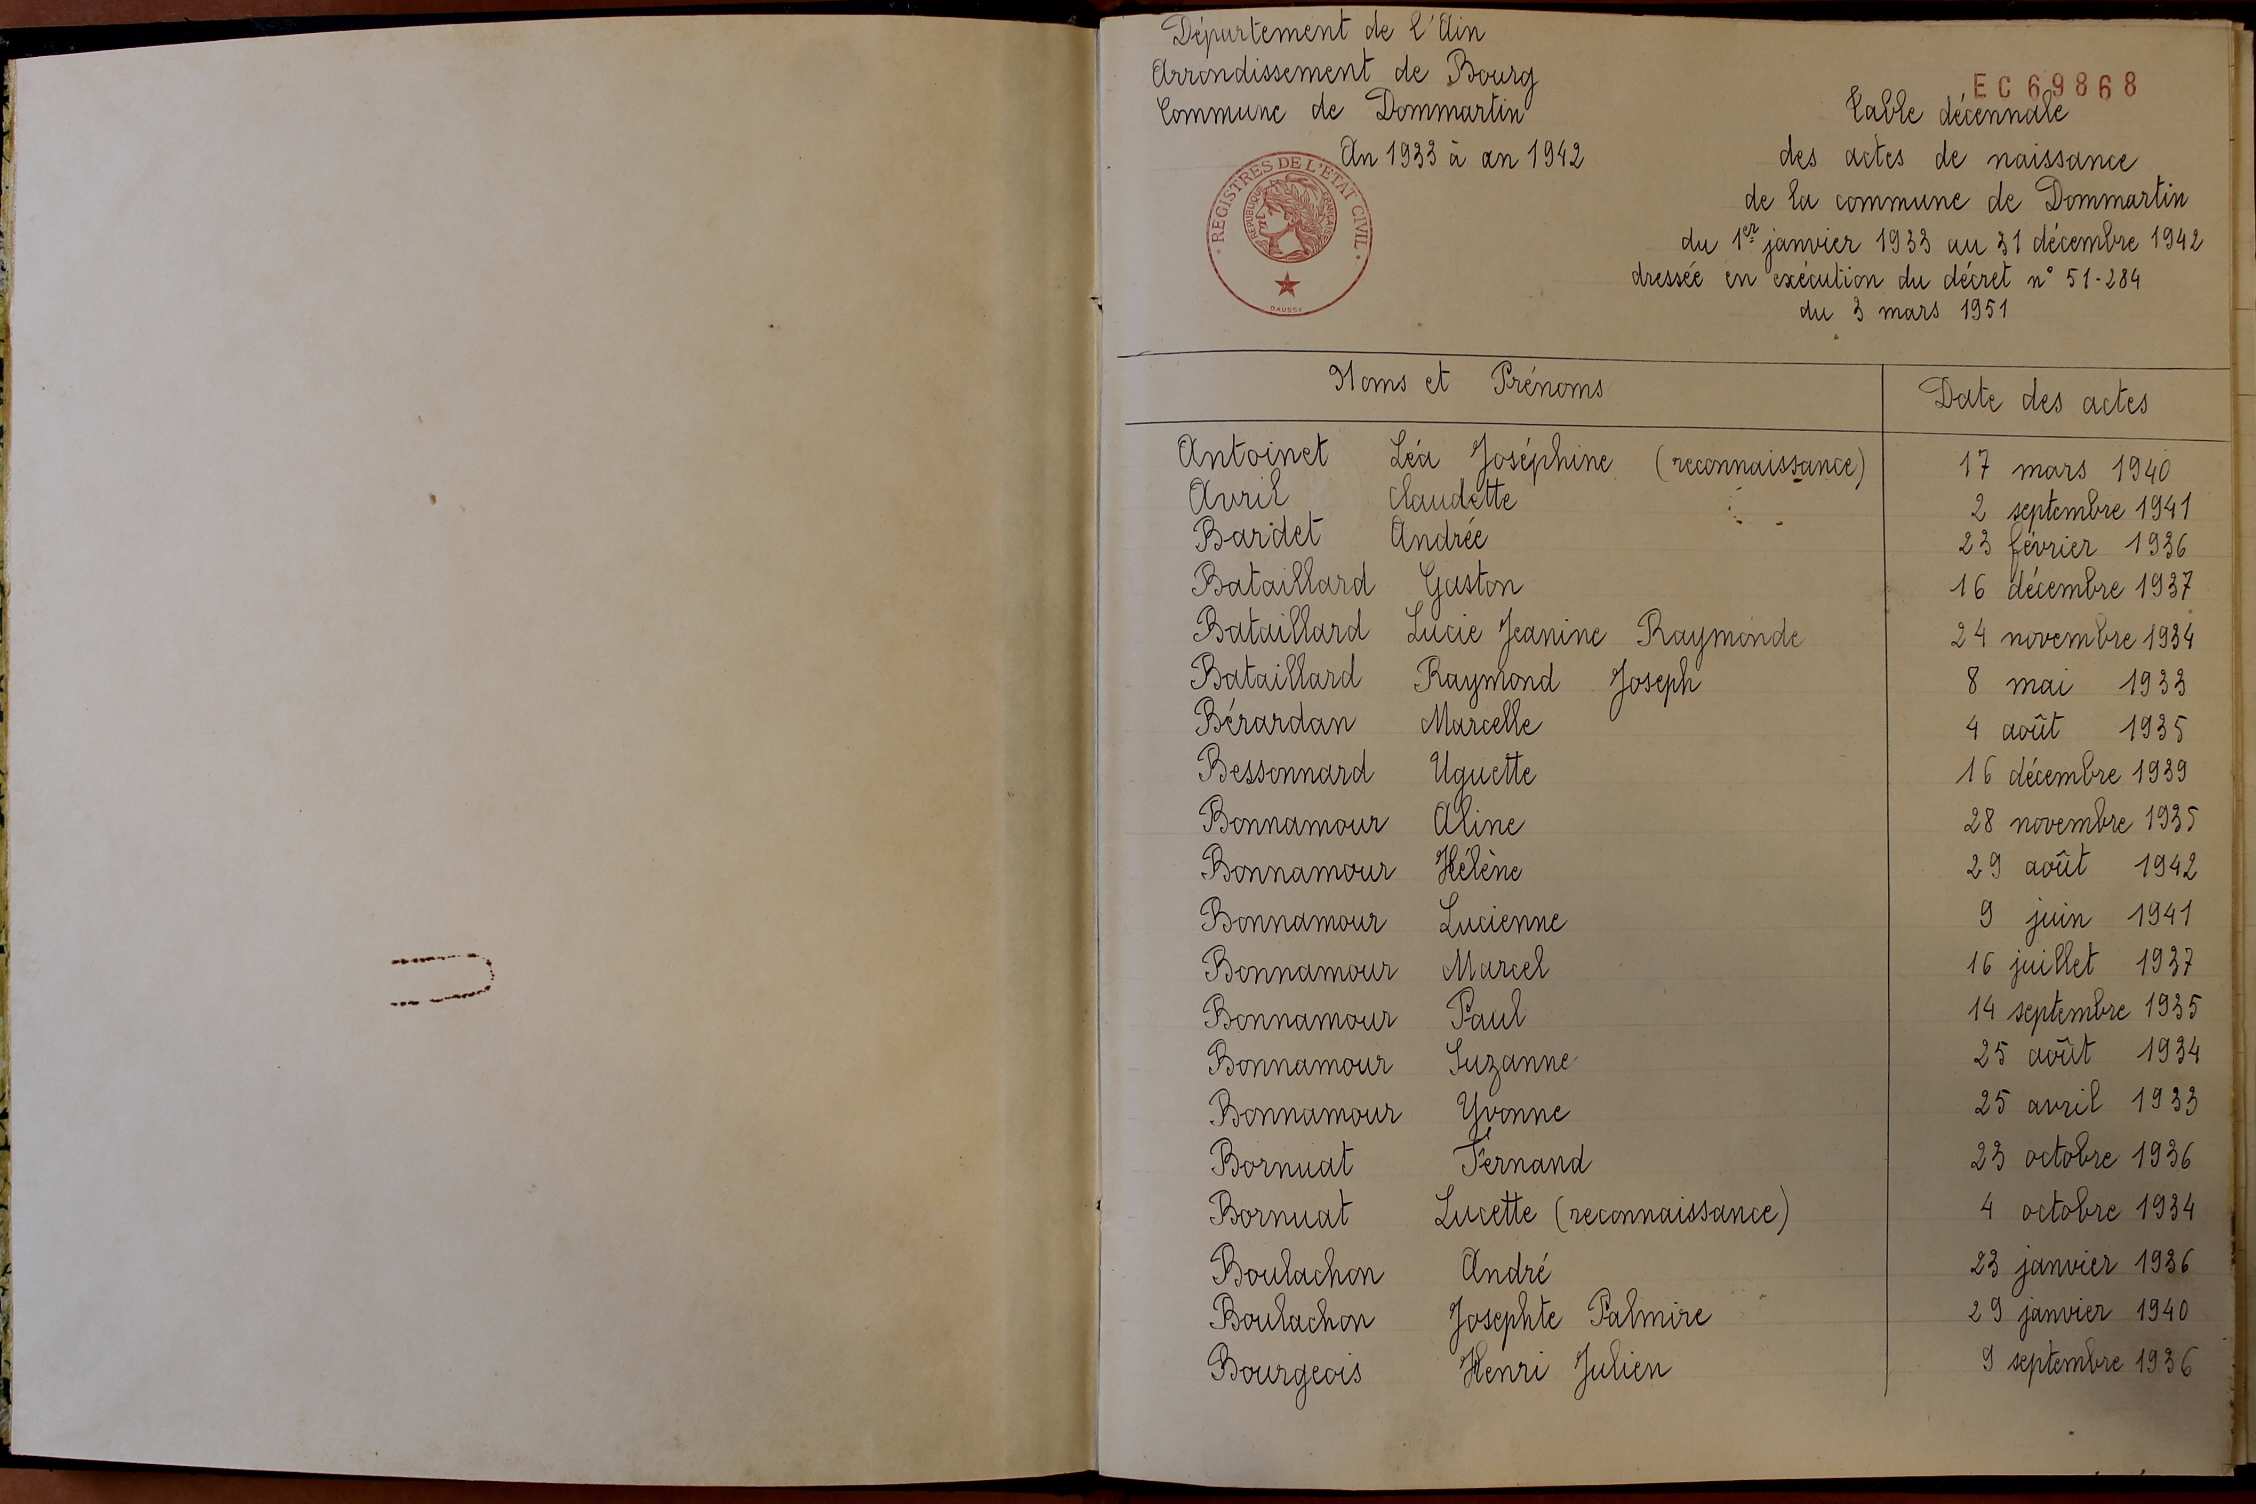 Département de l'Ain
Arrondissement de Bourg
Commune de Dommartin
An 1933 à an 1942
REGISTRES DE L'ETAT CIVIL
REPUBLIQUE FRANÇAISE
EC 69868
Table décennale
des actes de naissance
de la commune de Dommartin
du 1er janvier 1933 au 31 décembre 1942
dressée en exécution du décret n° 51-284
du 3 mars 1951
Noms et Prénoms Date des actes
Antoinet Léa Joséphine (reconnaissance) 17 mars 1940
Avril Claudette 2 septembre 1941
Bardet Andrée 23 février 1936
Bataillard Gaston 16 décembre 1937
Bataillard Lucie Jeanine Raymonde 24 novembre 1934
Bataillard Raymond Joseph 8 mai 1933
Bérardan Marcelle 4 août 1935
Bessonnard Uguette 16 décembre 1939
Bonnamour Aline 28 novembre 1935
Bonnamour Hélène 29 août 1942
Bonnamour Lucienne 9 juin 1941
Bonnamour Marcel 16 juillet 1937
Bonnamour Paul 14 septembre 1935
Bonnamour Suzanne 25 août 1934
Bonnamour Yvonne 25 avril 1933
Bornuat Fernand 23 octobre 1936
Bornuat Lucette (reconnaissance) 4 octobre 1934
Boulachon André 23 janvier 1936
Boulachon Josephte Palmire 29 janvier 1940
Bourgeois Henri Julien 9 septembre 1936